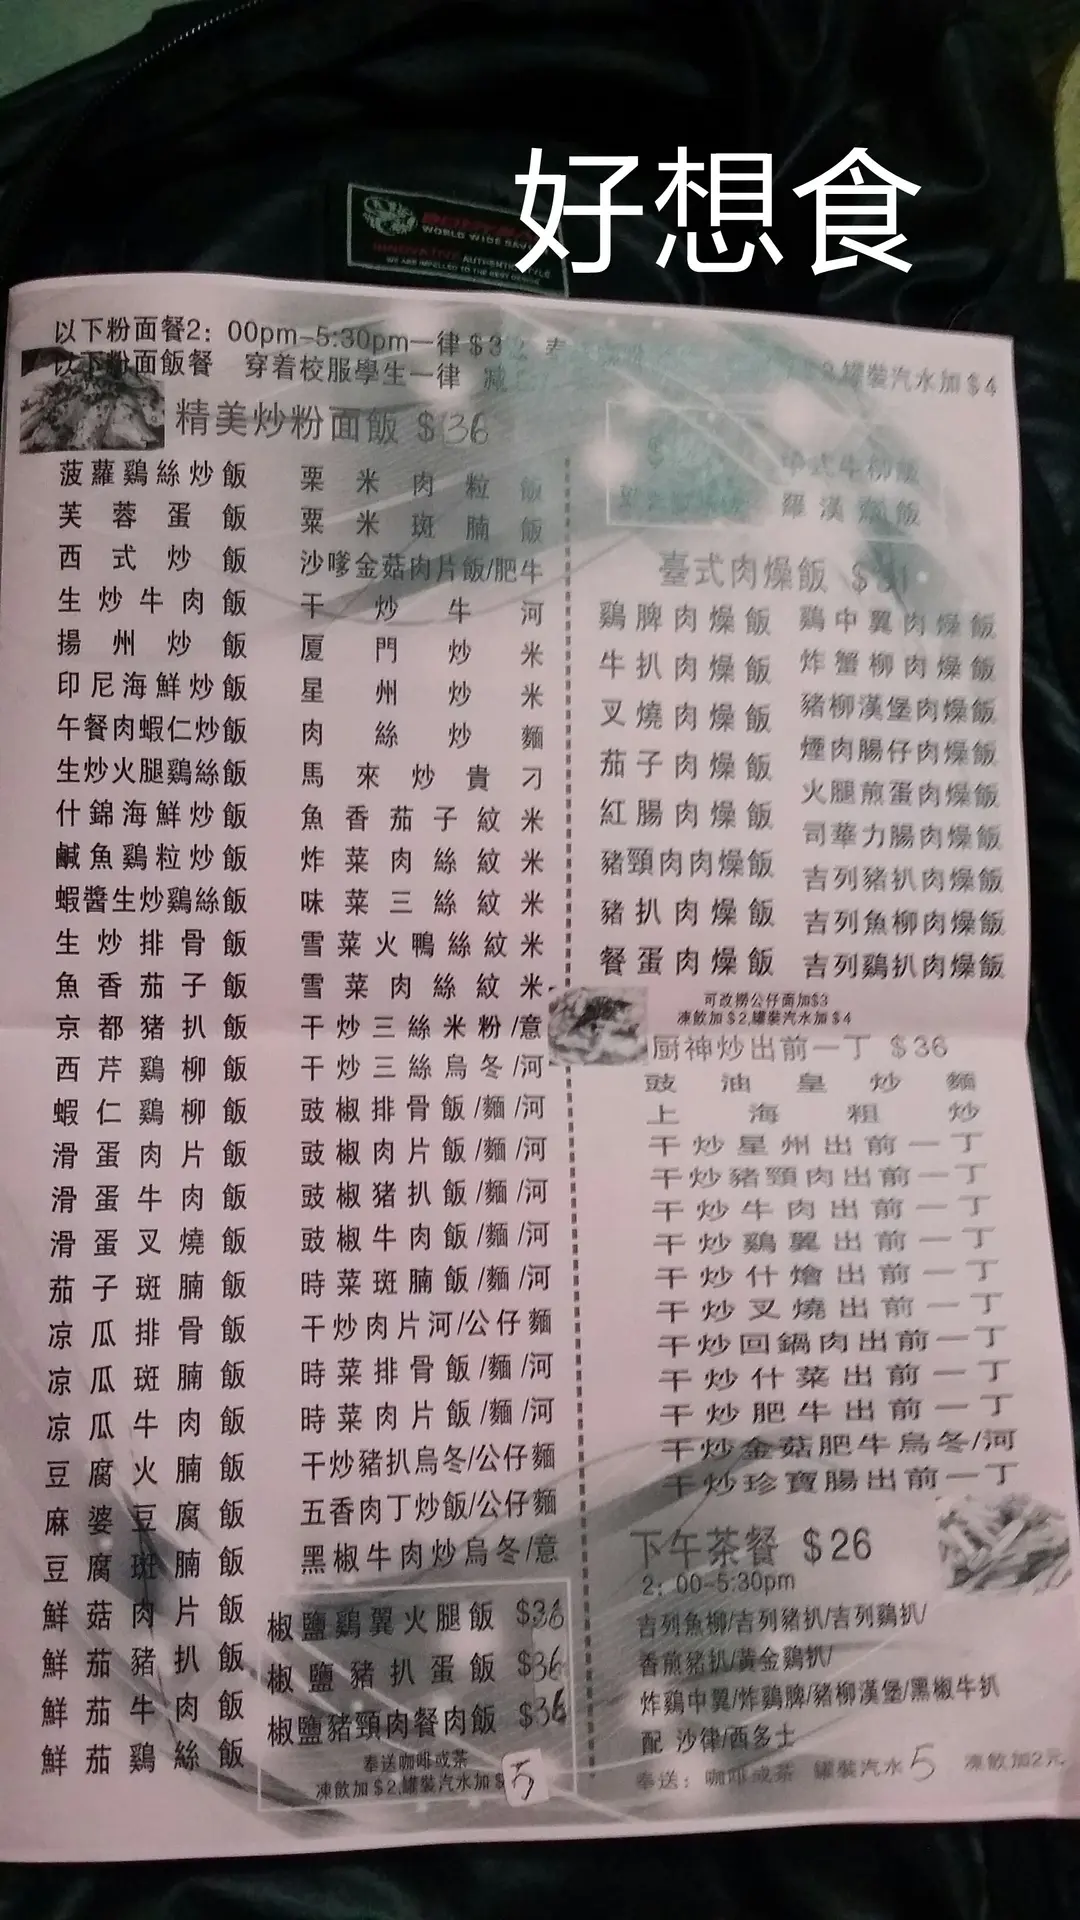 好想食
WORLD WIDE
INNOVATIVE AUTHENTIC STYLE
WE ARE IMPELLED TO THE BEST DESIGN
以下粉面餐2：00pm-5:30pm一律$3
以下粉面飯餐 穿着校服學生一律 減
罐裝汽水加$4
精美炒粉面飯 $36
菠蘿鷄絲炒飯
芙蓉蛋飯
西式炒飯
生炒牛肉飯
揚州炒飯
印尼海鮮炒飯
午餐肉蝦仁炒飯
生炒火腿鷄絲飯
什錦海鮮炒飯
鹹魚鷄粒炒飯
蝦醬生炒鷄絲飯
生炒排骨飯
魚香茄子飯
京都猪扒飯
西芹鷄柳飯
蝦仁鷄柳飯
滑蛋肉片飯
滑蛋牛肉飯
滑蛋叉燒飯
茄子斑腩飯
凉瓜排骨飯
凉瓜斑腩飯
凉瓜牛肉飯
豆腐火腩飯
麻婆豆腐飯
豆腐斑腩飯
鮮菇肉片飯
鮮茄豬扒飯
鮮茄牛肉飯
鮮茄鷄絲飯
栗米肉粒飯
粟米斑腩飯
沙嗲金菇肉片飯/肥牛
干炒牛河
厦門炒米
星州炒米
肉絲炒麵
馬來炒貴刁
魚香茄子紋米
炸菜肉絲紋米
味菜三絲紋米
雪菜火鴨絲紋米
雪菜肉絲紋米
干炒三絲米粉/意
干炒三絲烏冬/河
豉椒排骨飯/麵/河
豉椒肉片飯/麵/河
豉椒猪扒飯/麵/河
豉椒牛肉飯/麵/河
時菜斑腩飯/麵/河
干炒肉片河/公仔麵
時菜排骨飯/麵/河
時菜肉片飯/麵/河
干炒豬扒烏冬/公仔麵
五香肉丁炒飯/公仔麵
黑椒牛肉炒烏冬/意
椒鹽鷄翼火腿飯 $36
椒鹽豬扒蛋飯 $36
椒鹽豬頸肉餐肉飯 $36
奉送咖啡或茶
凍飲加$2,罐裝汽水加$5
中式牛柳飯
羅漢齋飯
臺式肉燥飯
鷄脾肉燥飯
牛扒肉燥飯
叉燒肉燥飯
茄子肉燥飯
紅腸肉燥飯
豬頸肉肉燥飯
豬扒肉燥飯
餐蛋肉燥飯
鷄中翼肉燥飯
炸蟹柳肉燥飯
豬柳漢堡肉燥飯
煙肉腸仔肉燥飯
火腿煎蛋肉燥飯
司華力腸肉燥飯
吉列豬扒肉燥飯
吉列魚柳肉燥飯
吉列鷄扒肉燥飯
可改撈公仔面加$3
凍飲加$2,罐裝汽水加$4
厨神炒出前一丁 $36
豉油皇炒麵
上海粗炒
干炒星州出前一丁
干炒豬頸肉出前一丁
干炒牛肉出前一丁
干炒鷄翼出前一丁
干炒什燴出前一丁
干炒叉燒出前一丁
干炒回鍋肉出前一丁
干炒什菜出前一丁
干炒肥牛出前一丁
干炒金菇肥牛烏冬/河
干炒珍寶腸出前一丁
下午茶餐 $26
2：00-5:30pm
吉列魚柳/吉列豬扒/吉列鷄扒/
香煎豬扒/黄金鷄扒/
炸鷄中翼/炸鷄脾/豬柳漢堡/黑椒牛扒
配 沙律/西多士
奉送：咖啡或茶 罐裝汽水5 凍飲加2元